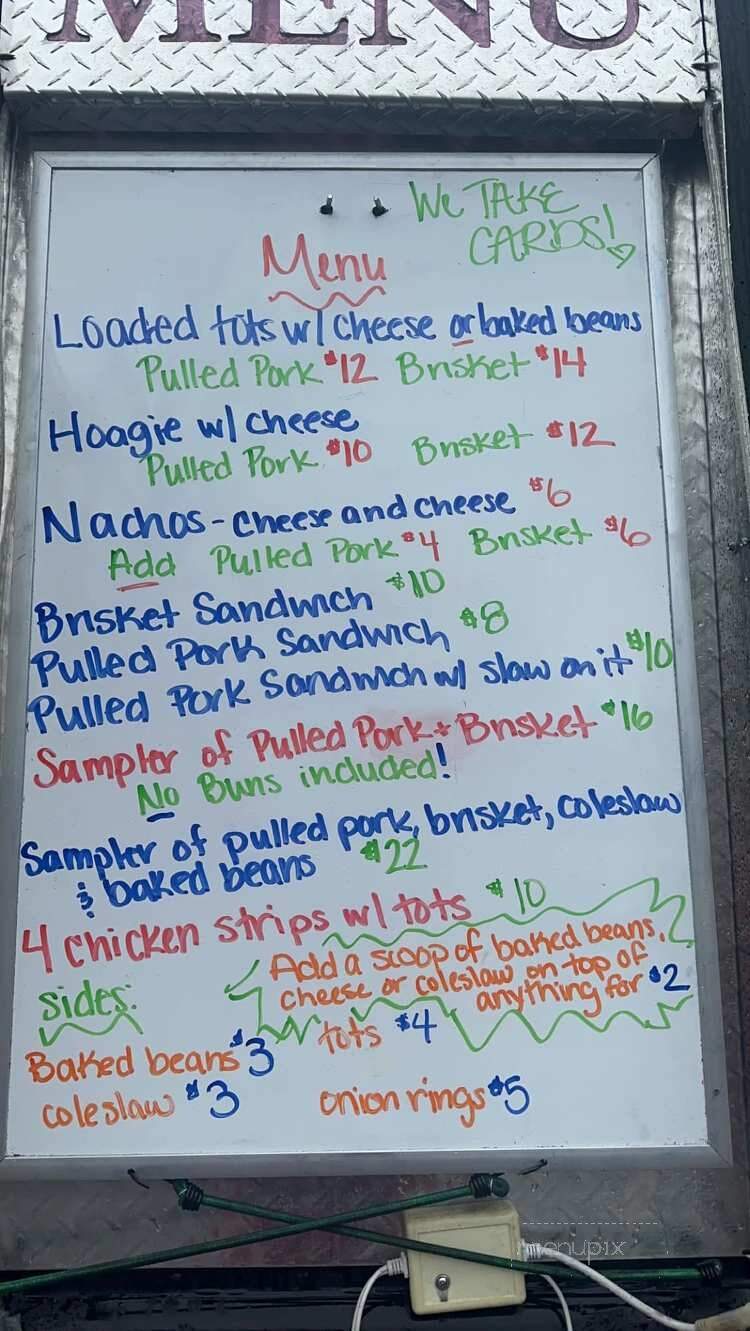 MENU
We TAKE
CARDS!
Menu
Loaded tots w/ cheese or baked beans
Pulled Pork $12 Brisket $14
Hoagie w/ cheese
Pulled Pork $10 Brisket $12
Nachos - cheese and cheese $6
Add Pulled Pork $4 Brisket $6
Brisket Sandwich $10
Pulled Pork Sandwich $8
Pulled Pork Sandwich w/ slaw on it $10
Sampler of Pulled Pork + Brisket $16
No Buns included!
Sampler of pulled pork, brisket, coleslaw
& baked beans $22
4 chicken strips w/ tots $10
Add a scoop of baked beans,
cheese or coleslaw on top of
anything for $2
sides:
Baked beans $3 tots $4
coleslaw $3 onion rings $5
menupix